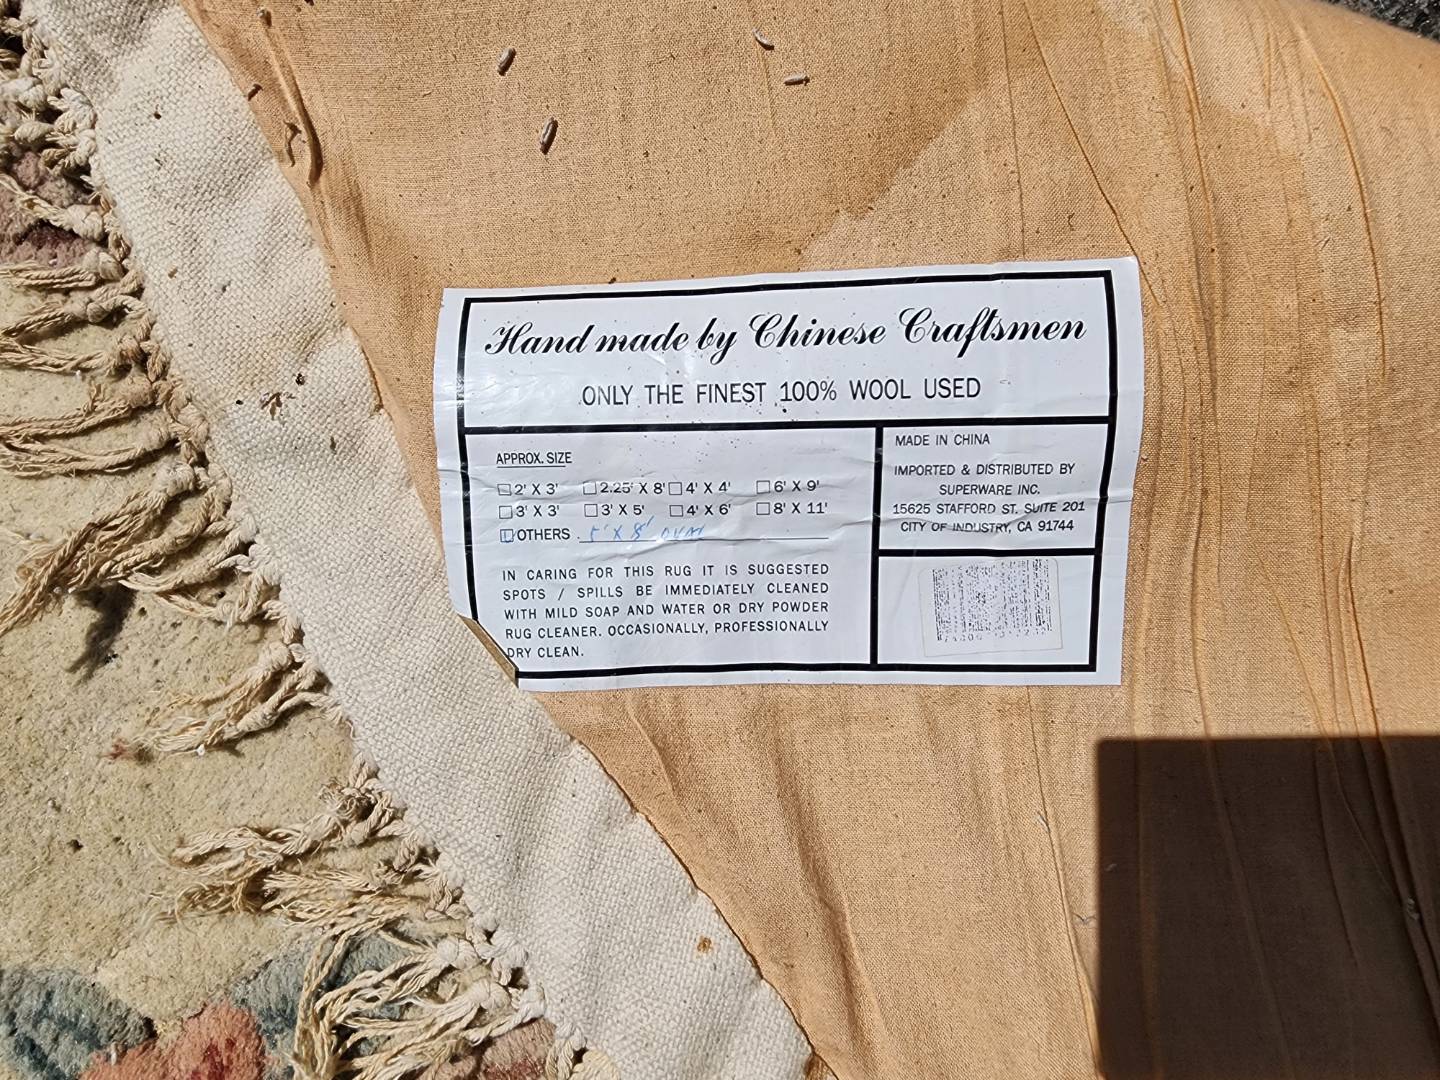 Hand made by Chinese Craftsmen
ONLY THE FINEST 100% WOOL USED
APPROX. SIZE
2' X 3' 2.25' X 8' 4' X 4' 6' X 9'
3' X 3' 3' X 5' 4' X 6' 8' X 11'
OTHERS 5' X 8' OVAL
IN CARING FOR THIS RUG IT IS SUGGESTED
SPOTS / SPILLS BE IMMEDIATELY CLEANED
WITH MILD SOAP AND WATER OR DRY POWDER
RUG CLEANER. OCCASIONALLY, PROFESSIONALLY
DRY CLEAN.
MADE IN CHINA
IMPORTED & DISTRIBUTED BY
SUPERWARE INC.
15625 STAFFORD ST. SUITE 201
CITY OF INDUSTRY, CA 91744